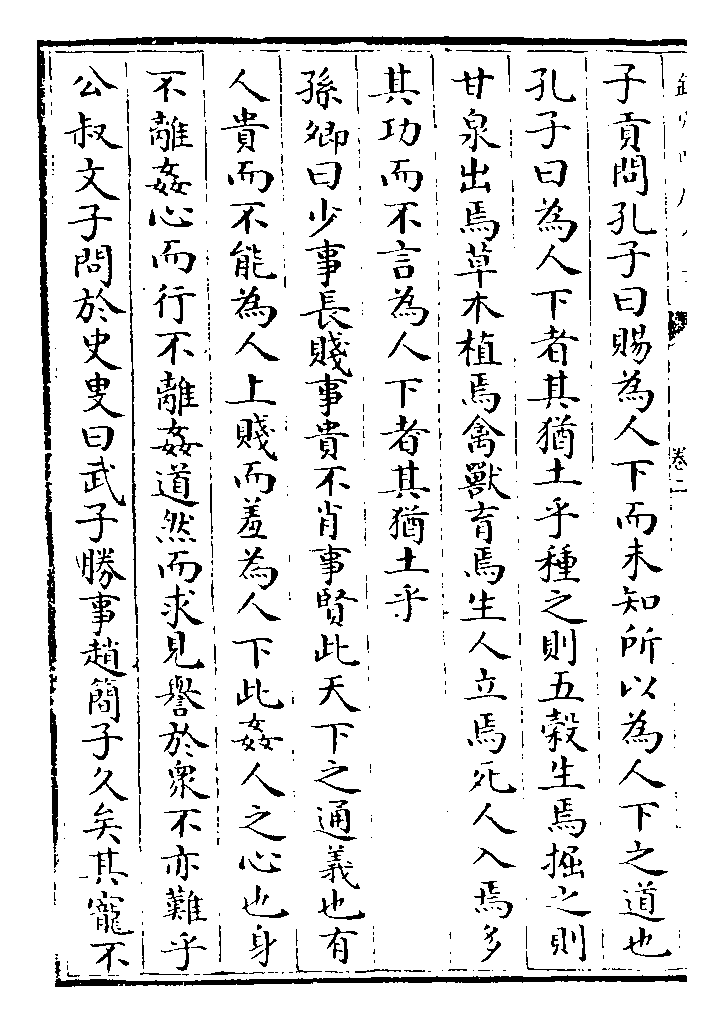 卷二
子貢問孔子曰賜為人下而未知所以為人下之道也
孔子曰為人下者其猶土乎種之則五榖生焉掘之則
甘泉出焉草木植焉禽獸育焉生人立焉死人入焉多
其功而不言為人下者其猶土乎
孫卿曰少事長賤事貴不肖事賢此天下之通義也有
人貴而不能為人上賤而羞為人下此姦人之心也身
不離姦心而行不離姦道然而求見譽於衆不亦難乎
公叔文子問於史叟曰武子勝事趙簡子久矣其寵不